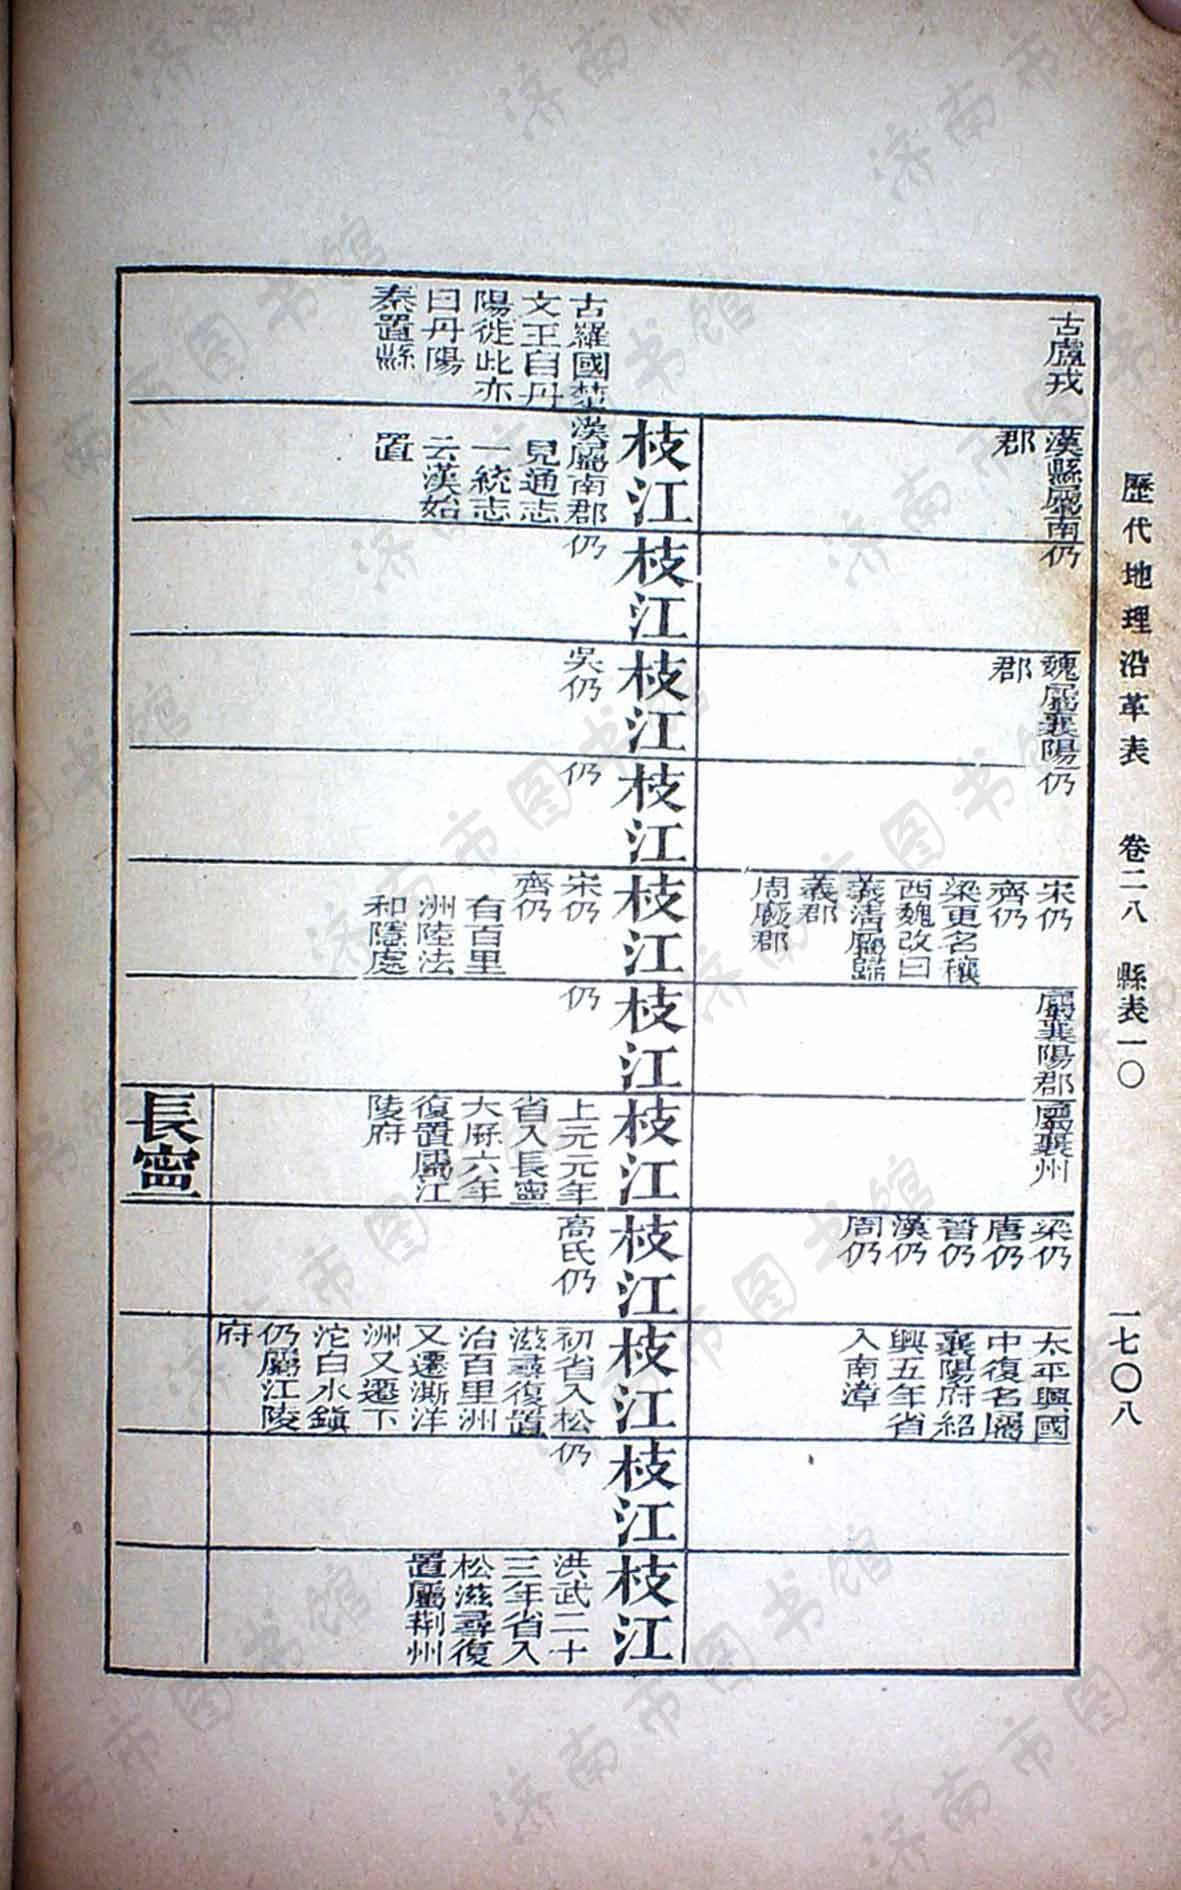 歷代地理沿革表　卷二八　縣表一〇　一七〇八
古盧戎
漢縣屬南
郡
仍
魏屬襄陽
郡
仍
宋仍
齊仍
梁更名穰
西魏改曰
義清屬歸
義郡
周廢郡
屬襄陽郡
屬襄州
梁仍
唐仍
晉仍
漢仍
周仍
太平興國
中復名屬
襄陽府紹
興五年省
入南漳
古羅國楚
文王自丹
陽徙此亦
曰丹陽
秦置縣
枝江
漢屬南郡
見通志
一統志
云漢始
置
枝江
仍
枝江
吳仍
枝江
仍
枝江
宋仍
齊仍
有百里
洲陸法
和隱處
枝江
仍
枝江
上元元年
省入長寧
大厤六年
復置屬江
陵府
枝江
高氏仍
枝江
初省入松
滋尋復置
治百里洲
又遷澌洋
洲又遷下
沱白水鎭
仍屬江陵
府
枝江
仍
枝江
洪武二十
三年省入
松滋尋復
置屬荆州
長寧
济南市图书馆